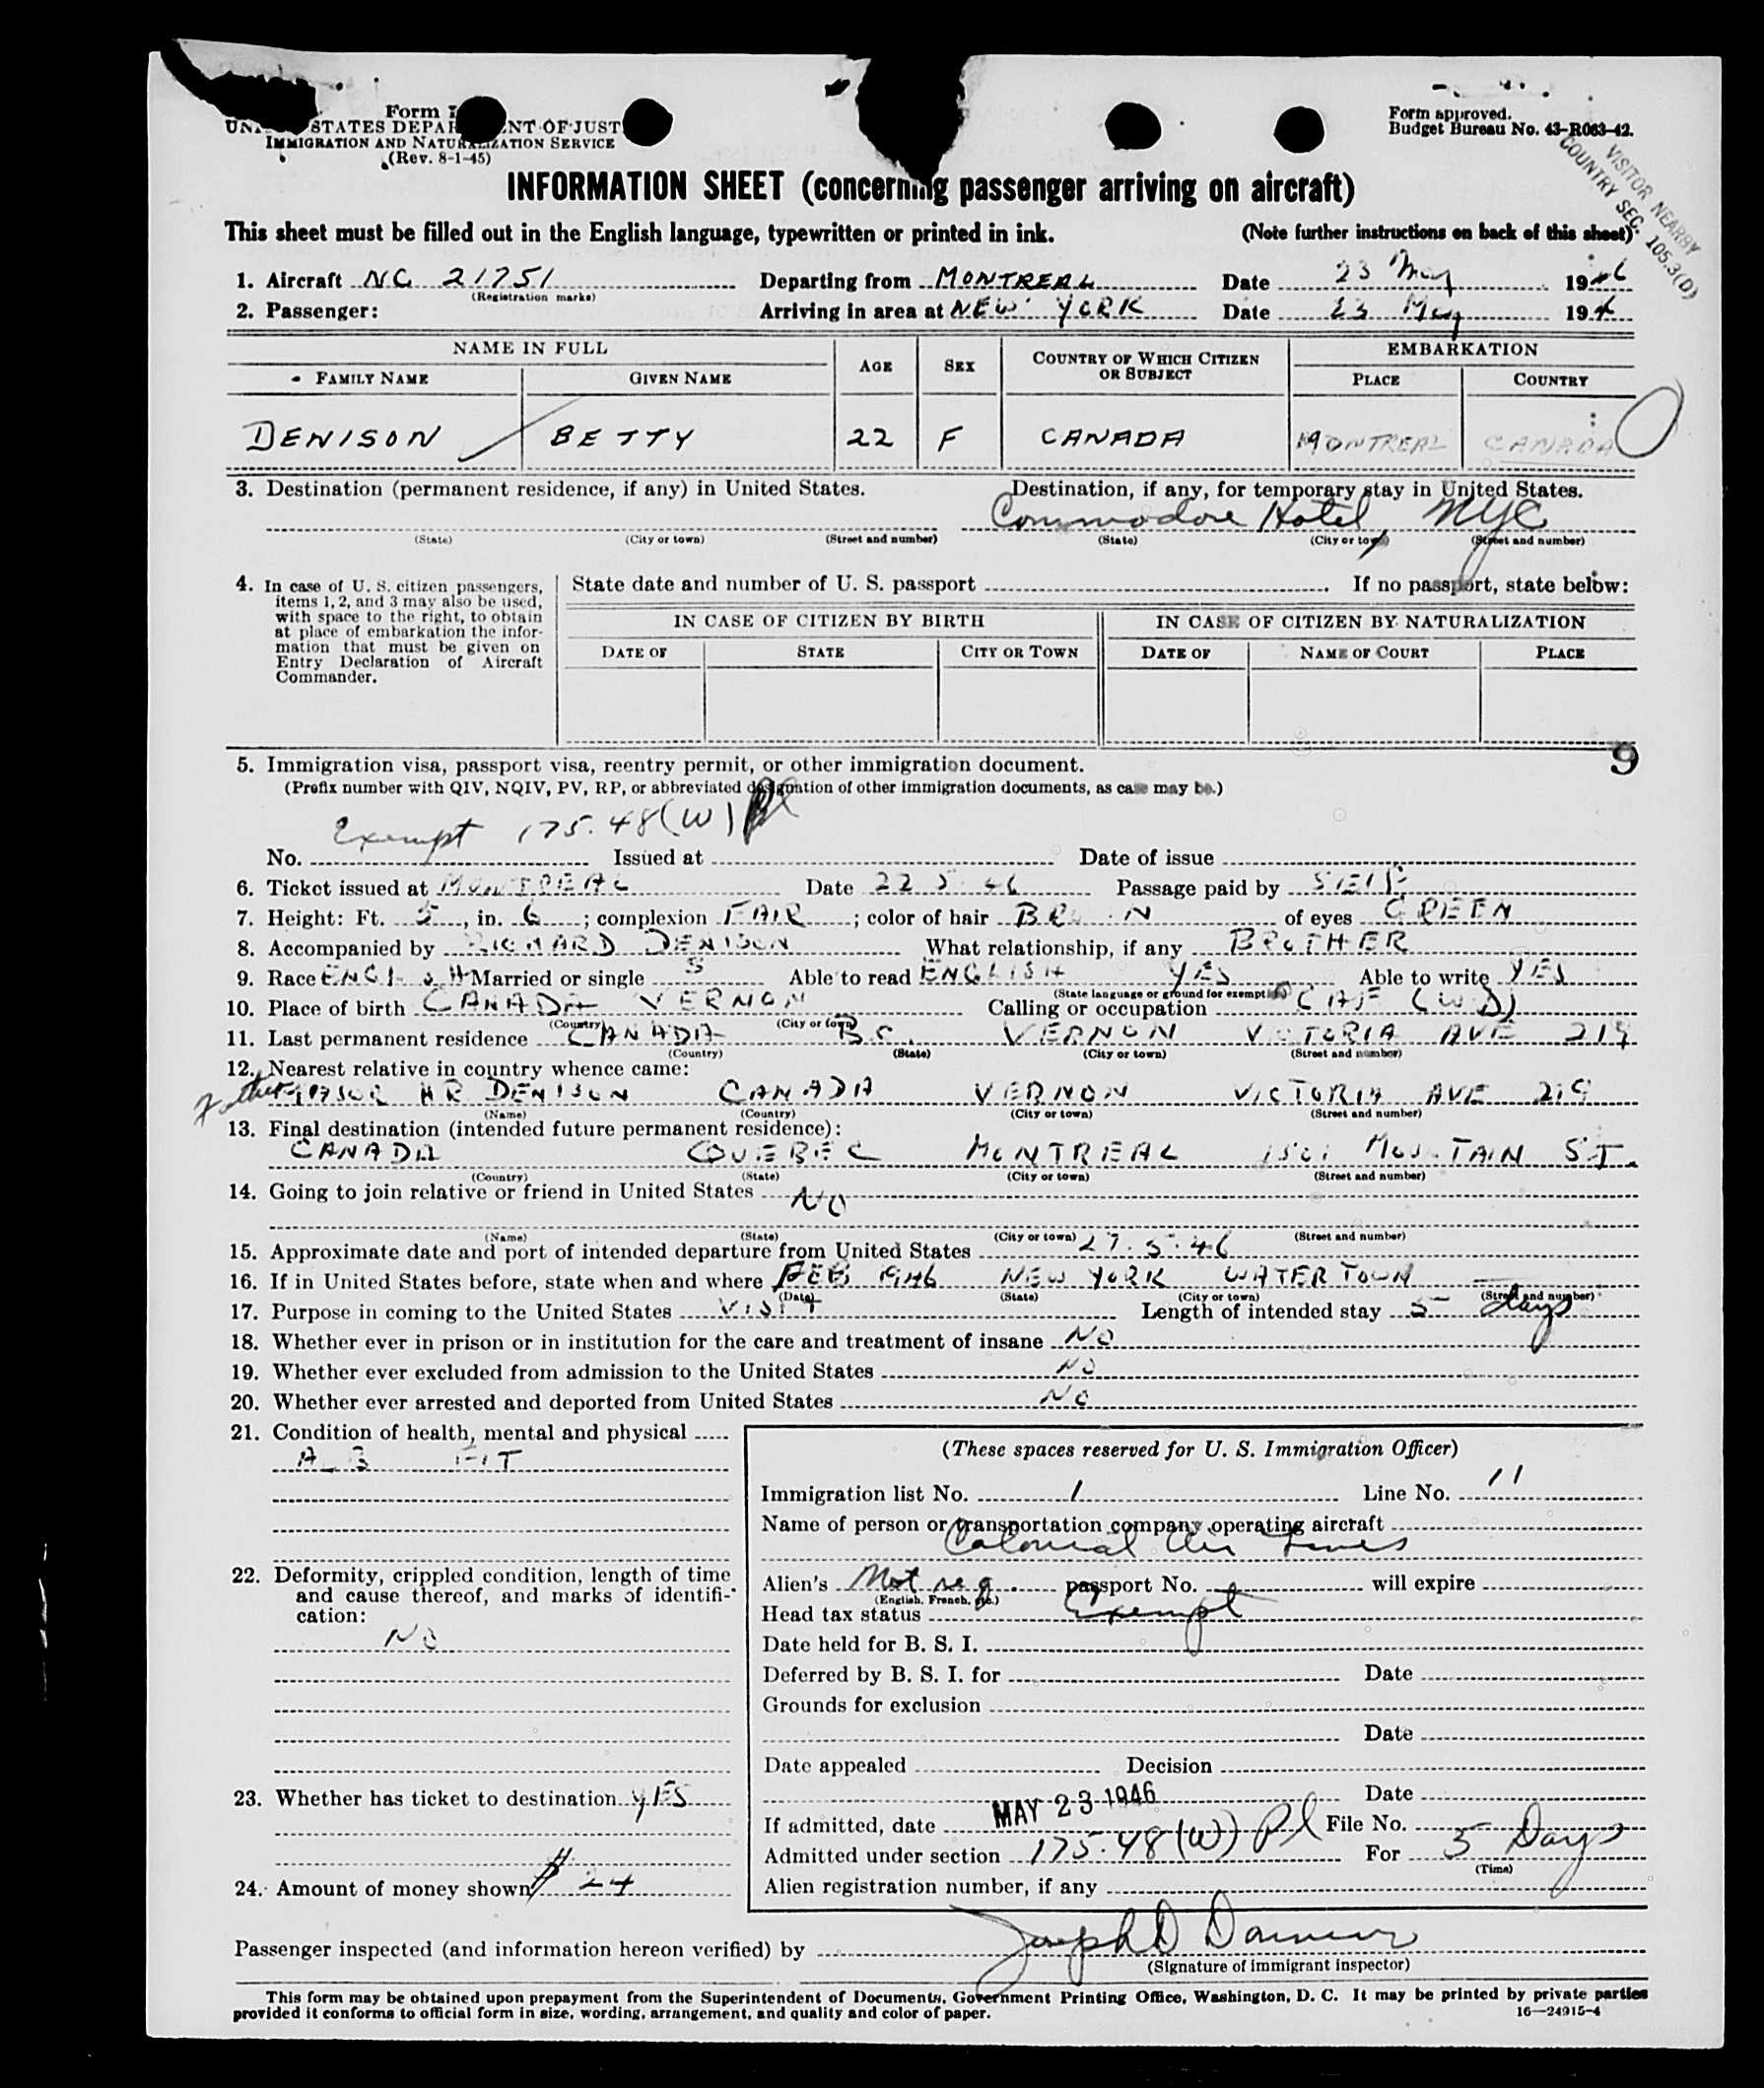 Form I
UNITED STATES DEPARTMENT OF JUSTICE
IMMIGRATION AND NATURALIZATION SERVICE
(Rev. 8-1-45)
Form approved.
Budget Bureau No. 43-R063-42.
VISITOR NEARBY
COUNTRY SEC. 105.3(D)
INFORMATION SHEET (concerning passenger arriving on aircraft)
This sheet must be filled out in the English language, typewritten or printed in ink. (Note further instructions on back of this sheet)
1. Aircraft NC 21751 Departing from MONTREAL Date 23 May 1946
(Registration marks)
2. Passenger: Arriving in area at NEW YORK Date 23 May 194
NAME IN FULL AGE SEX COUNTRY OF WHICH CITIZEN OR SUBJECT EMBARKATION
FAMILY NAME GIVEN NAME PLACE COUNTRY
DENISON BETTY 22 F CANADA MONTREAL CANADA
3. Destination (permanent residence, if any) in United States. Destination, if any, for temporary stay in United States.
Commodore Hotel, NYC
(State) (City or town) (Street and number) (State) (City or town) (Street and number)
4. In case of U. S. citizen passengers, items 1, 2, and 3 may also be used, with space to the right, to obtain at place of embarkation the information that must be given on Entry Declaration of Aircraft Commander.
State date and number of U. S. passport . If no passport, state below:
IN CASE OF CITIZEN BY BIRTH IN CASE OF CITIZEN BY NATURALIZATION
DATE OF STATE CITY OR TOWN DATE OF NAME OF COURT PLACE
9
5. Immigration visa, passport visa, reentry permit, or other immigration document.
(Prefix number with QIV, NQIV, PV, RP, or abbreviated designation of other immigration documents, as case may be.)
Exempt 175.48(W)
No. Issued at Date of issue
6. Ticket issued at MONTREAL Date 22 5 46 Passage paid by SELF
7. Height: Ft. 5, in. 6; complexion FAIR; color of hair BROWN of eyes GREEN
8. Accompanied by RICHARD DENISON What relationship, if any BROTHER
9. Race ENGLISH Married or single S Able to read ENGLISH YES Able to write YES
(State language or ground for exemption)
10. Place of birth CANADA VERNON Calling or occupation RCAF (WD)
(Country) (City or town)
11. Last permanent residence CANADA B.C. VERNON VICTORIA AVE 219
(Country) (State) (City or town) (Street and number)
12. Nearest relative in country whence came:
Father MAJOR HR DENISON CANADA VERNON VICTORIA AVE 219
(Name) (Country) (City or town) (Street and number)
13. Final destination (intended future permanent residence):
CANADA QUEBEC MONTREAL 1501 MOUNTAIN ST.
(Country) (State) (City or town) (Street and number)
14. Going to join relative or friend in United States NO
(Name) (State) (City or town) (Street and number)
15. Approximate date and port of intended departure from United States 27.5.46
16. If in United States before, state when and where FEB 1946 NEW YORK WATERTOWN
(Date) (State) (City or town) (Street and number)
17. Purpose in coming to the United States VISIT Length of intended stay 5 days
18. Whether ever in prison or in institution for the care and treatment of insane NO
19. Whether ever excluded from admission to the United States NO
20. Whether ever arrested and deported from United States NO
21. Condition of health, mental and physical
FIT
22. Deformity, crippled condition, length of time and cause thereof, and marks of identification:
NO
23. Whether has ticket to destination YES
24. Amount of money shown $ 24
(These spaces reserved for U. S. Immigration Officer)
Immigration list No. 1 Line No. 11
Name of person or transportation company operating aircraft
Colonial Air Lines
Alien's Not req. passport No. will expire
(English, French, etc.)
Head tax status Exempt
Date held for B. S. I.
Deferred by B. S. I. for Date
Grounds for exclusion
Date
Date appealed Decision
Date
If admitted, date MAY 23 1946 File No.
Admitted under section 175.48(W) For 5 Days
(Time)
Alien registration number, if any
Passenger inspected (and information hereon verified) by Joseph D
(Signature of immigrant inspector)
This form may be obtained upon prepayment from the Superintendent of Documents, Government Printing Office, Washington, D. C. It may be printed by private parties
provided it conforms to official form in size, wording, arrangement, and quality and color of paper. 16—24915-4